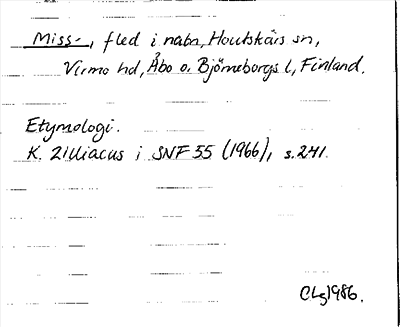 Miss-, fled i nabn, Houtskärs sn,
Virmo hd, Åbo o. Björneborgs l, Finland.
Etymologi.
K. Zilliacus i SNF 55 (1966), s. 241.
CLg 1986.